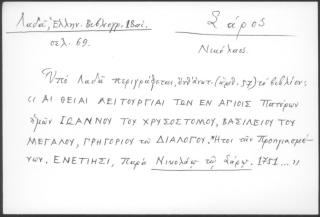 Λαδᾶ, Ἑλλην. Βιβλιογρ. 18 αἰ.
Σάρος
σελ. 69.
Νικόλαος.
Ὑπὸ Λαδᾶ περιγράφεται, (ἀριθ. 57) τὸ βιβλίον:
"ΑΙ ΘΕΙΑΙ ΛΕΙΤΟΥΡΓΙΑΙ ΤΩΝ ΕΝ ΑΓΙΟΙΣ Πατέρων
ἡμῶν ΙΩΑΝΝΟΥ ΤΟΥ ΧΡΥΣΟΣΤΟΜΟΥ, ΒΑΣΙΛΕΙΟΥ ΤΟΥ
ΜΕΓΑΛΟΥ, ΓΡΗΓΟΡΙΟΥ τοῦ ΔΙΑΛΟΓΟΥ. Ἤτοι τῶν Προηγιασμέ-
νων. ΕΝΕΤΙΗΣΙ, Παρὰ Νικολάῳ τῷ Σάρῳ. 1751 ... "